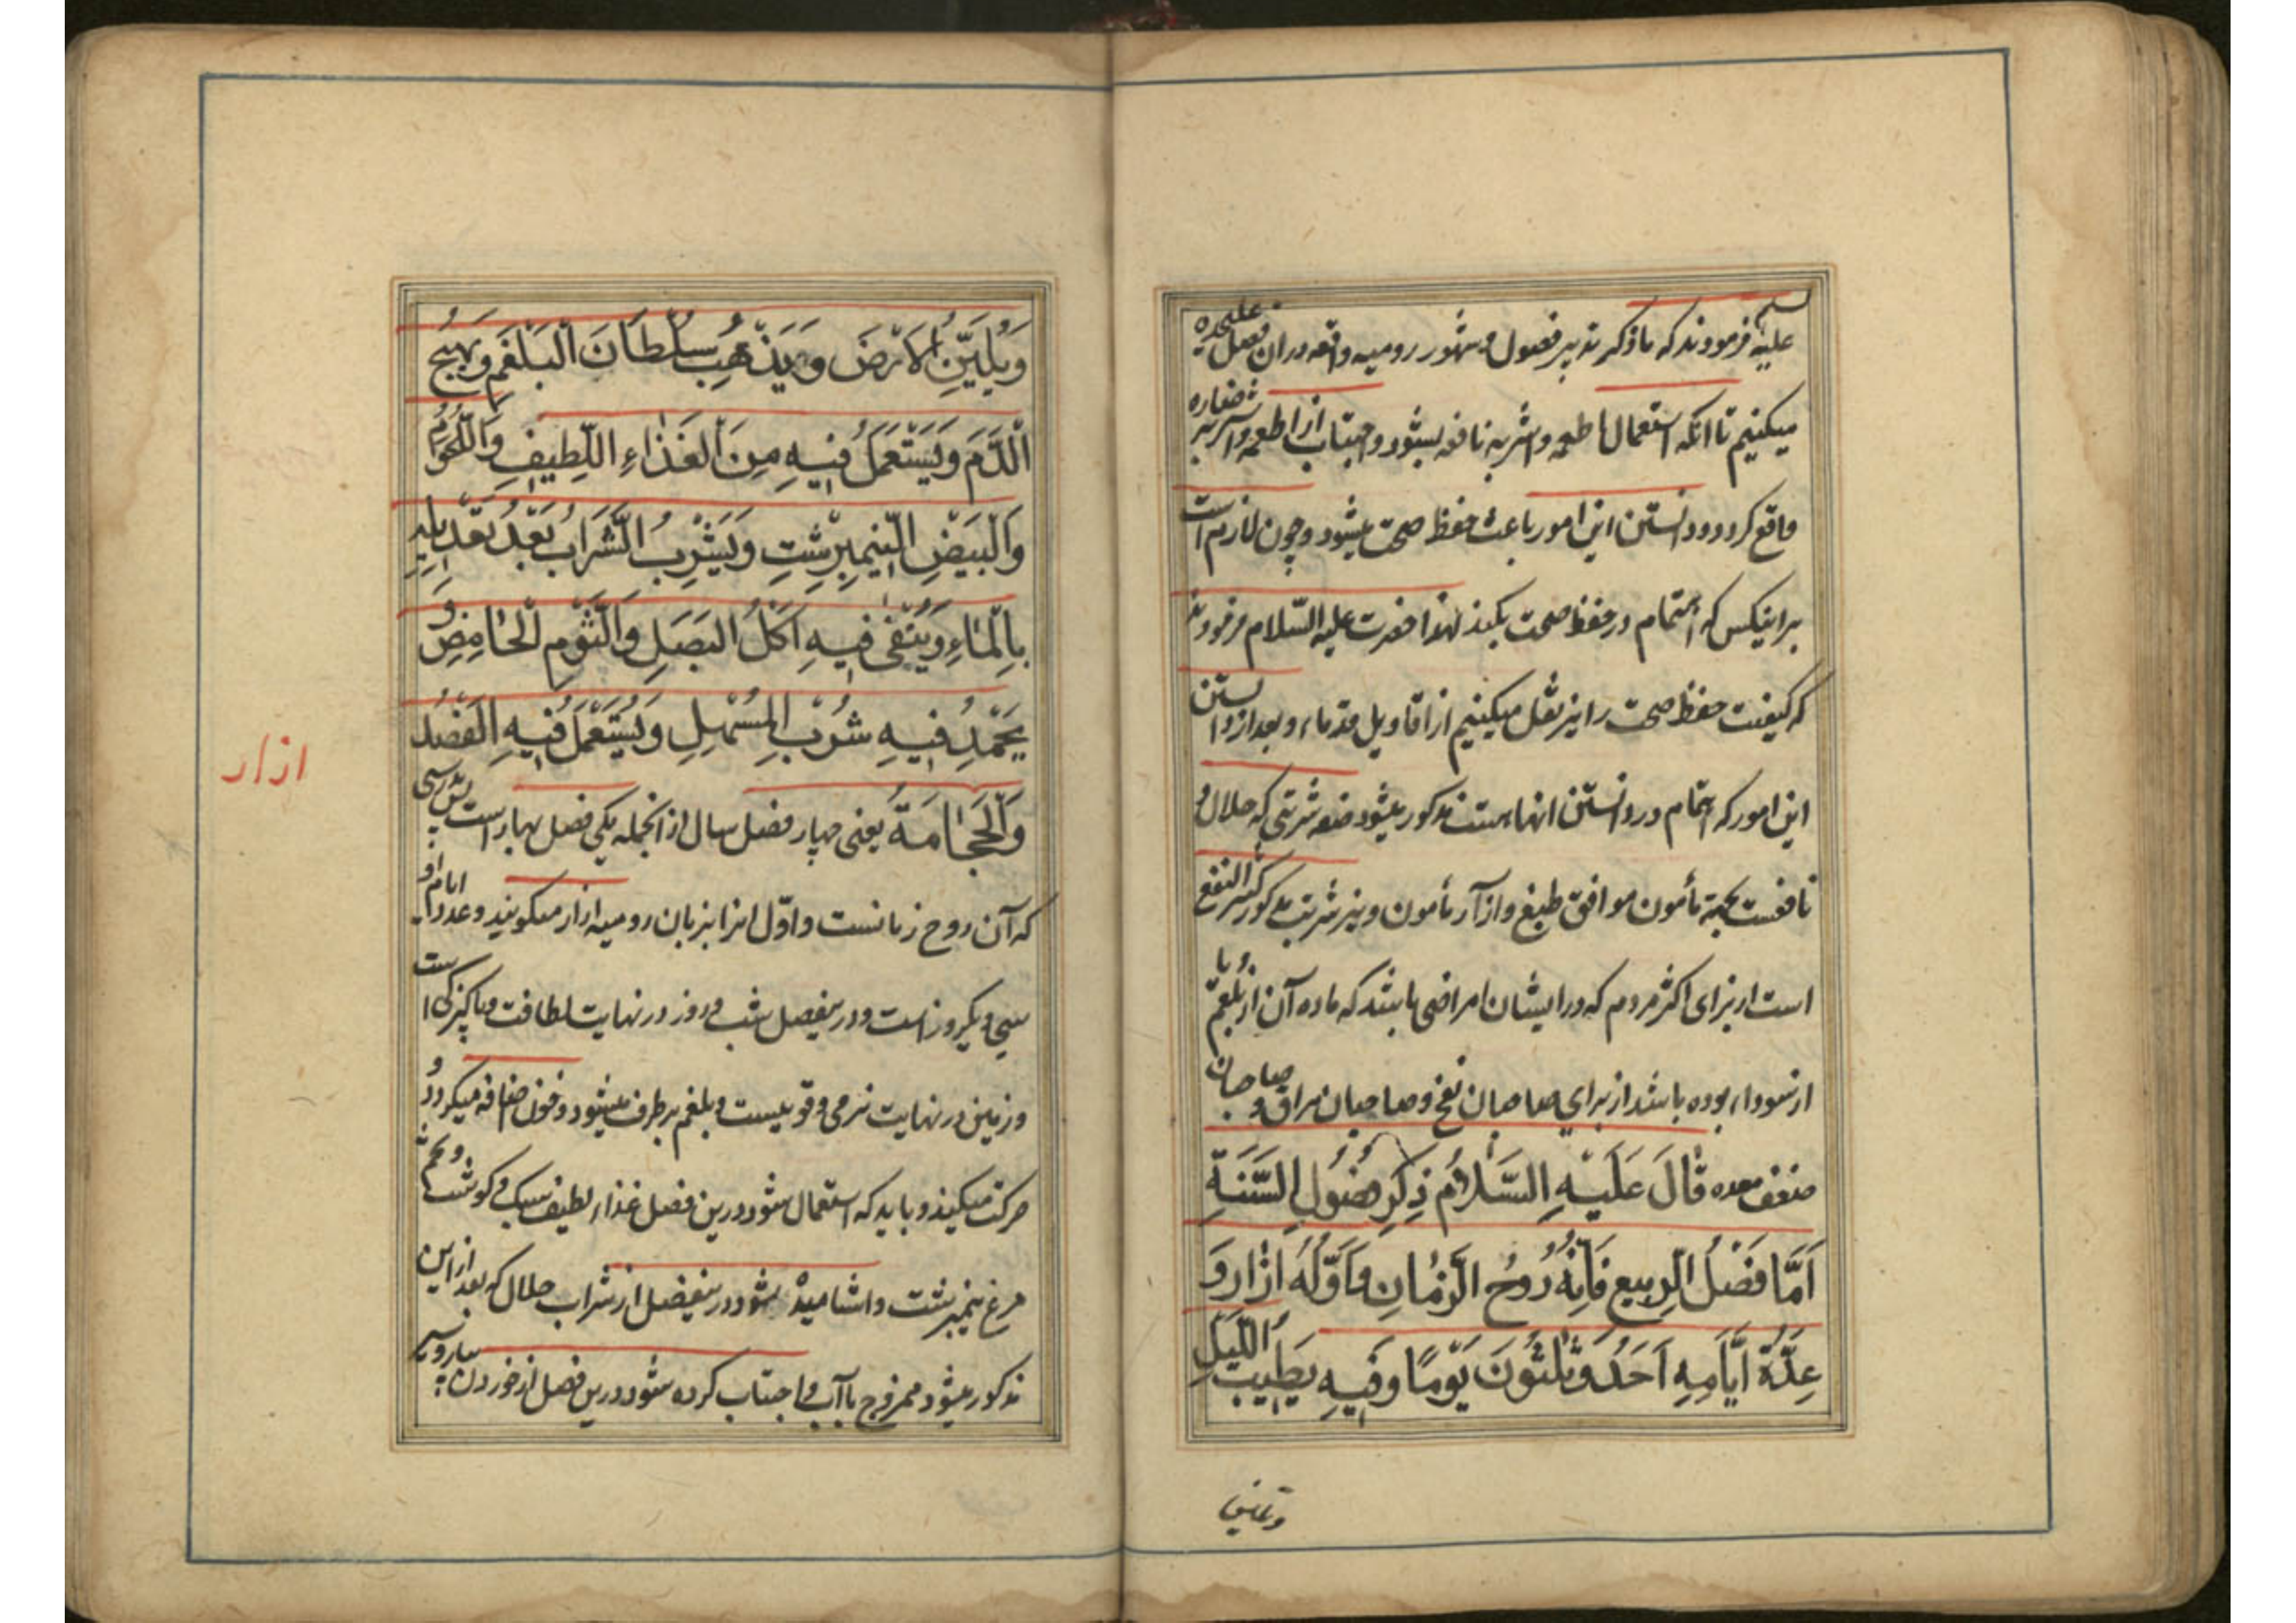 علیه السلم فرمودند که ما ذکر تدبیر فصول و شهور رومیه واقعه در آن فصل علیحده
میکنیم تا آنکه استعمال اطعمه و اشربه نافعه بشود و اجتناب از اطعمه و اشربه ضاره
واقع گردد و دانستن این امور باعث حفظ صحت میشود و چون لازم است
بر اینکس که اهتمام در حفظ صحت بکند لهذا حضرت علیه السّلام فرمودند
که کیفیت حفظ صحت را نیز نقل میکنیم از اقاویل قدماء و بعد از دانستن
این امور که اهتمام در دانستن انها هست مذکور میشود صفه شربتی که حلال و
نافعست بجهة مأمون موافق طبع و از آزار مأمون و نیز شربت مذکور کثیر النفع
است از برای اکثر مردم که در ایشان امراضی باشد که ماده آن از بلغم و یا
از سوداء بوده باشد از برای صاحبان نفخ و صاحبان مراق و صاحبان
ضعف معده قٰالَ عَلَيْهِ السَّلٰامُ ذِكْرِ فُصُولِ السَّنَةِ
اَمَّا فَصْلُ الرَّبيعِ فَاِنَّهُ رُوحُ الزَّمٰانِ وَاَوَّلُهُ اذٰار وَ
عِدَّةُ اَيَّامِهِ اَحَدُ وَ ثَلٰثُونَ يَوْمًا وَفيهِ يَطيبُ اللَّيْلُ
وَيُلَيِّنُ الْاَرْضَ وَيَذْهَبُ سُلْطَانَ الْبَلْغَمِ وَيَهيجُ
الْدَّمَ وَيُسْتَعْمَلُ فيهِ مِنَ الْغَذٰاءِ اللَّطيفِ وَاللُّحُوْمُ
وَالْبَيْضِ النّيمبِرِشْتِ وَيَشْرِبُ الشَّرَابُ بَعْدَ تَعْديلِهِ
بِالْمٰاءِ وَيُتَّقٰى فيهِ اَكْلُ الْبَصَلِ وَالثَّوْمِ الْحٰامِضِ وَ
يَحْمَدُ فيهِ شُرْبُ الْمُسْهِلِ وَيُسْتَعْمَلُ فيهِ الْفَصْدُ
وَالْحَجٰامَةُ یعنی چهار فصل سال از انجمله یکی فصل بهار است بتدرستی
که آن روح زمانست و اوّل انرا بزبان رومیه ازار میگویند و عدد ایام او
سی و یکروز است و در ینفصل شب و روز در نهایت لطافت و پاکیزگی است
و زمین در نهایت نرمی و قویست و بلغم بر طرف میشود و خون اضافه میگردد و
حرکت میکند و باید که استعمال شود در ین فصل غذاء لطیف سبک و گوشت و تخم
مرغ نیمبرشت و اشامیده بشود در ینفصل از شراب حلال که بعد از این
مذکور میشود ممزوج با آب و اجتناب کرده شود در ین فصل از خوردن
ازار